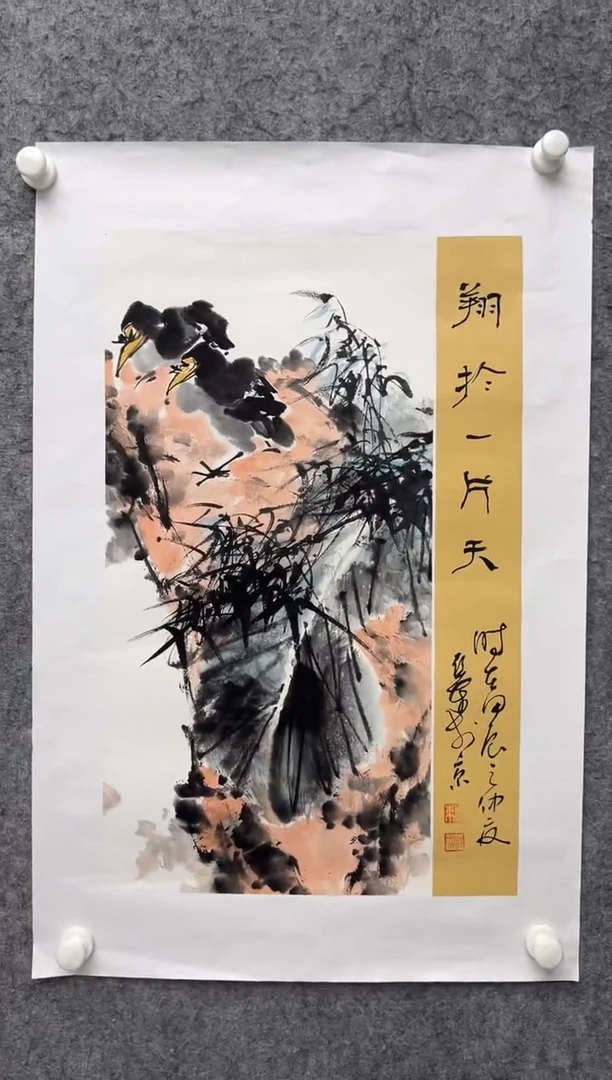 翔於一片天
时在甲辰之仲夏
於京